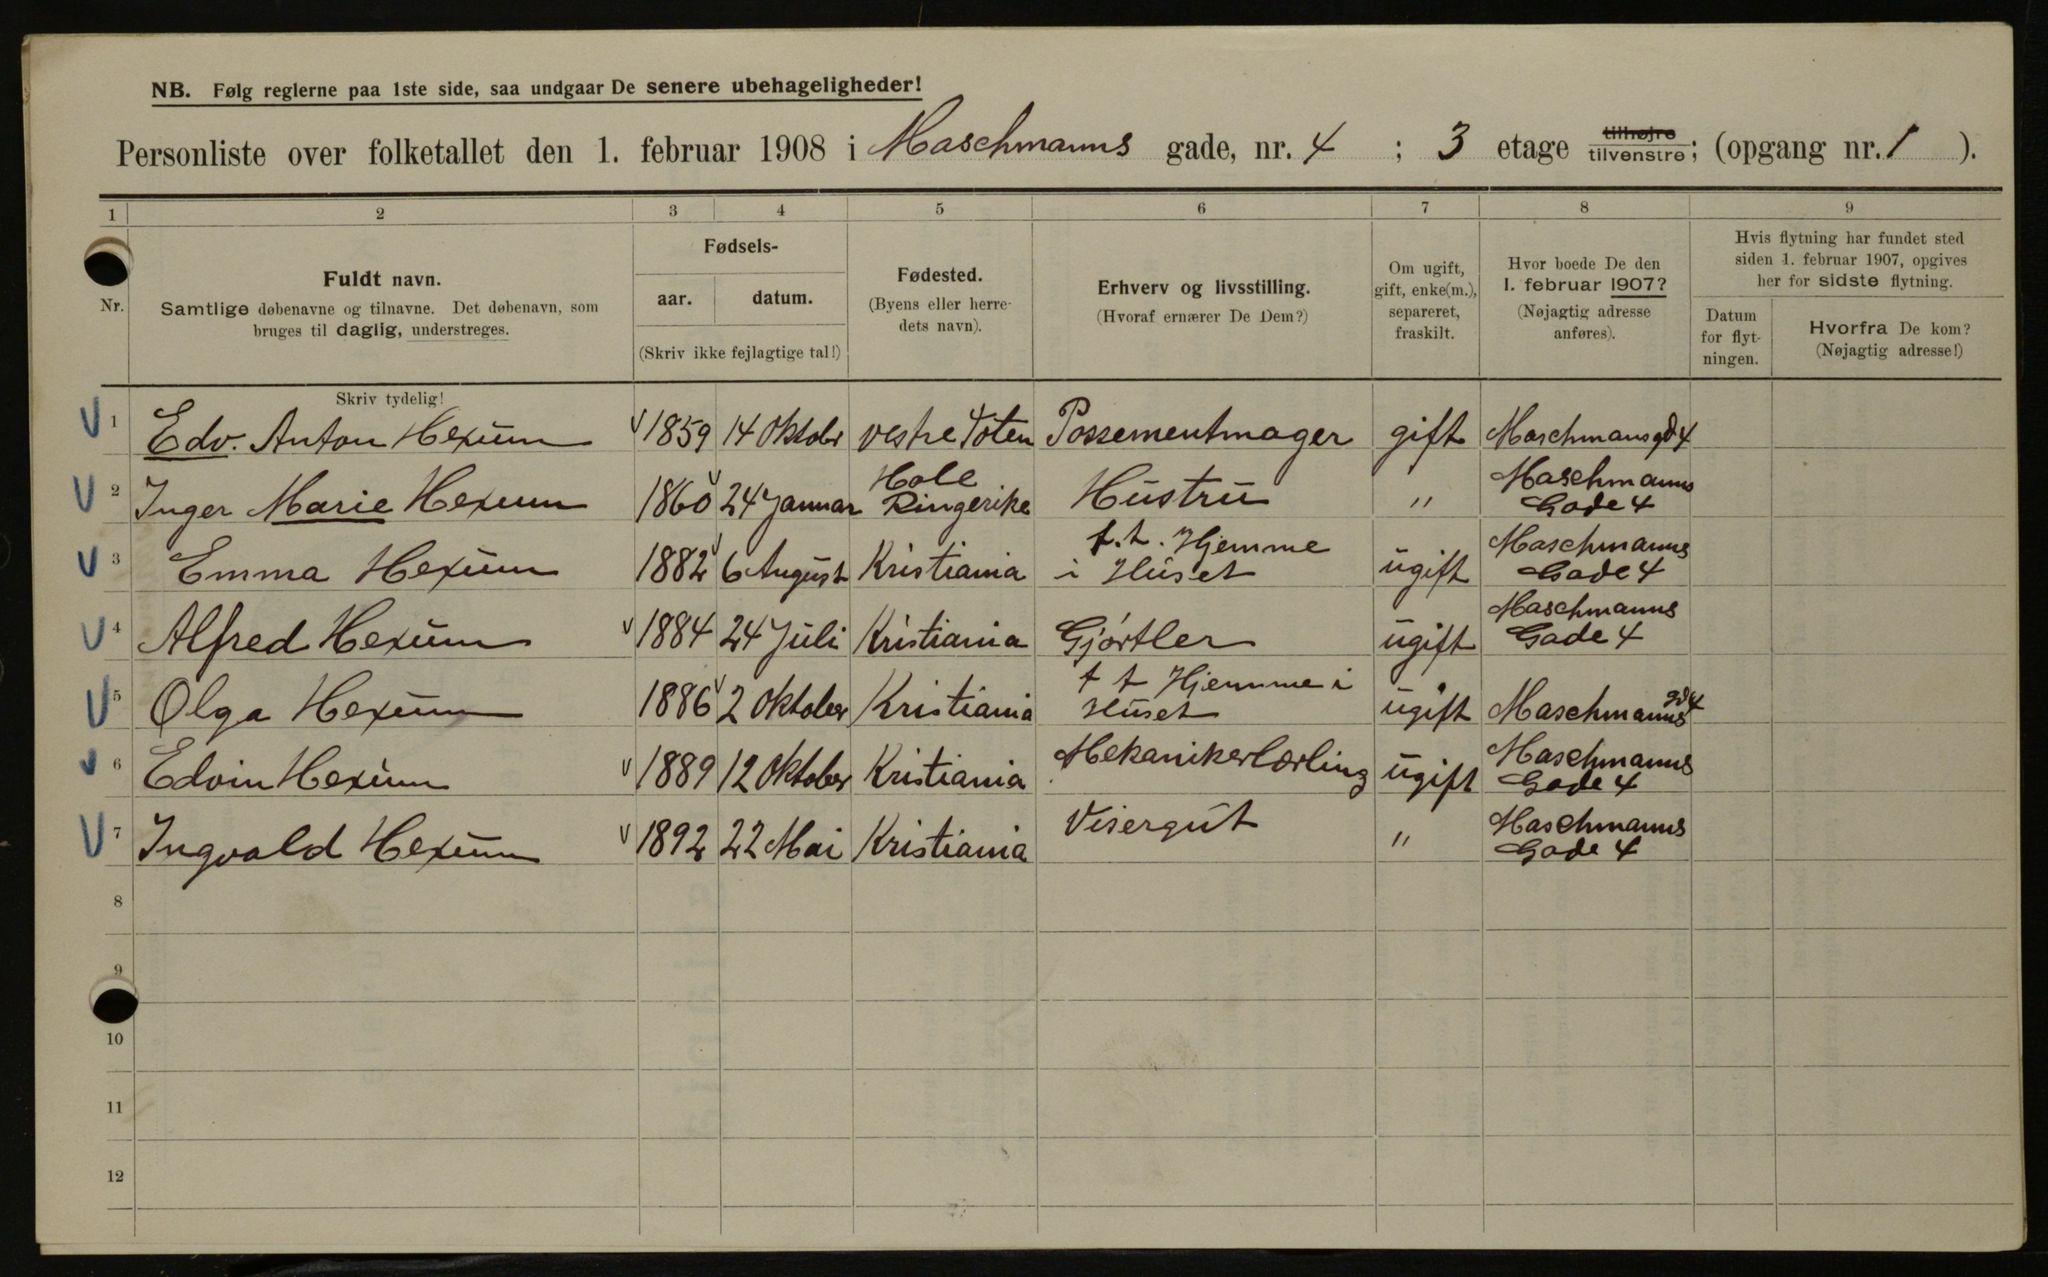 NB. Følg reglerne paa 1ste side, saa undgaar De senere ubehageligheder!
Personliste over folketallet den 1. februar 1908 i Maschmanns gade, nr. 4 ; 3 etage tilhøjre tilvenstre; (opgang nr. 1 ).
1 2 3 4 5 6 7 8 9
Nr.
Fuldt navn.
Samtlige døbenavne og tilnavne. Det døbenavn, som
bruges til daglig, understreges.
Skriv tydelig!
Fødsels-
aar. datum.
(Skriv ikke fejlagtige tal!)
Fødested.
(Byens eller herre-
dets navn).
Erhverv og livsstilling.
(Hvoraf ernærer De Dem?)
Om ugift,
gift, enke(m.),
separeret,
fraskilt.
Hvor boede De den
1. februar 1907?
(Nøjagtig adresse
anføres).
Hvis flytning har fundet sted
siden 1. februar 1907, opgives
her for sidste flytning.
Datum
for flyt-
ningen.
Hvorfra De kom?
(Nøjagtig adresse!)
1 Edv. Anton Hexum 1859 14 Oktobr vestre Toten Possementmager gift Maschmansgd 4
2 Inger Marie Hexum 1860 24 Januar Hole Ringerike Hustru " Maschmanns Gade 4
3 Emma Hexum 1882 6 August Kristiania t.t. Hjemme i Huset ugift Maschmanns Gade 4
4 Alfred Hexum 1884 24 Juli Kristiania Gjørtler ugift Maschmanns Gade 4
5 Olga Hexum 1886 2 Oktober Kristiania t t Hjemme i Huset ugift Maschmanns gd 4
6 Edvin Hexum 1889 12 Oktober Kristiania Mekanikerlærling ugift Maschmanns Gade 4
7 Ingvald Hexum 1892 22 Mai Kristiania Visergut " Maschmanns Gade 4
8
9
10
11
12